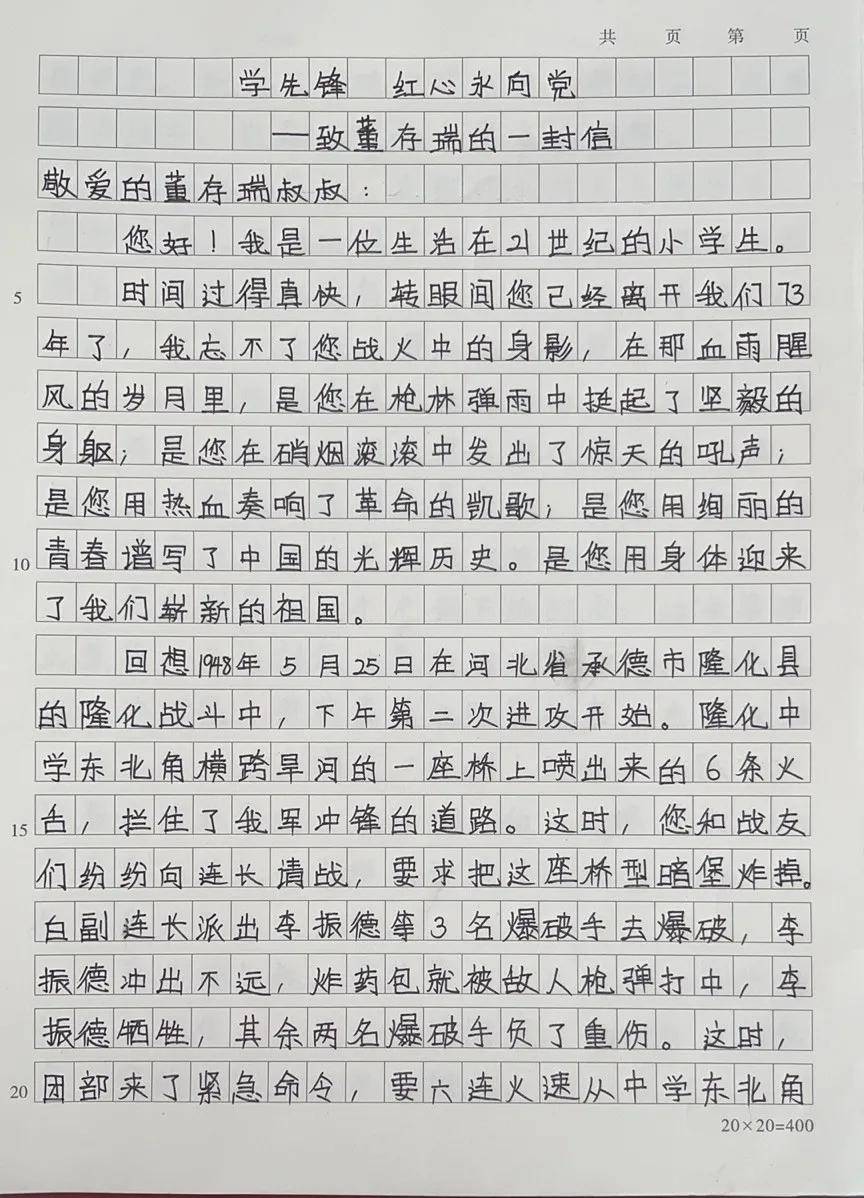 共 页 第 页
学先锋 红心永向党
——致董存瑞的一封信
敬爱的董存瑞叔叔：
您好！我是一位生活在21世纪的小学生。
5 时间过得真快，转眼间您已经离开我们73
年了，我忘不了您战火中的身影，在那血雨腥
风的岁月里，是您在枪林弹雨中挺起了坚毅的
身躯；是您在硝烟滚滚中发出了惊天的吼声；
是您用热血奏响了革命的凯歌；是您用绚丽的
10 青春谱写了中国的光辉历史。是您用身体迎来
了我们崭新的祖国。
回想1948年5月25日在河北省承德市隆化县
的隆化战斗中，下午第二次进攻开始。隆化中
学东北角横跨旱河的一座桥上喷出来的6条火
15 舌，拦住了我军冲锋的道路。这时，您和战友
们纷纷向连长请战，要求把这座桥型暗堡炸掉。
白副连长派出李振德等3名爆破手去爆破，李
振德冲出不远，炸药包就被敌人枪弹打中，李
振德牺牲，其余两名爆破手负了重伤。这时，
20 团部来了紧急命令，要六连火速从中学东北角
20×20=400